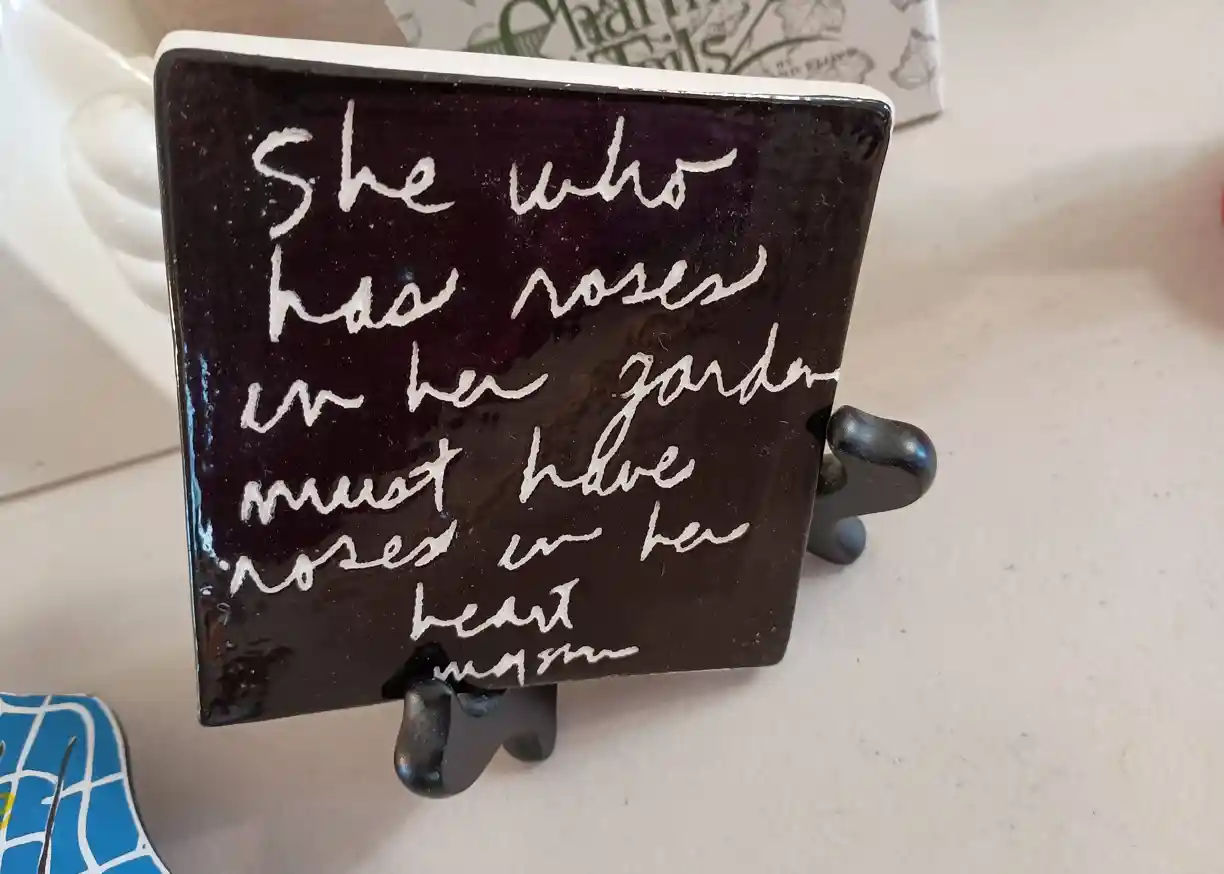 Charming
Tails
She who
has roses
in her garden
must have
roses in her
heart